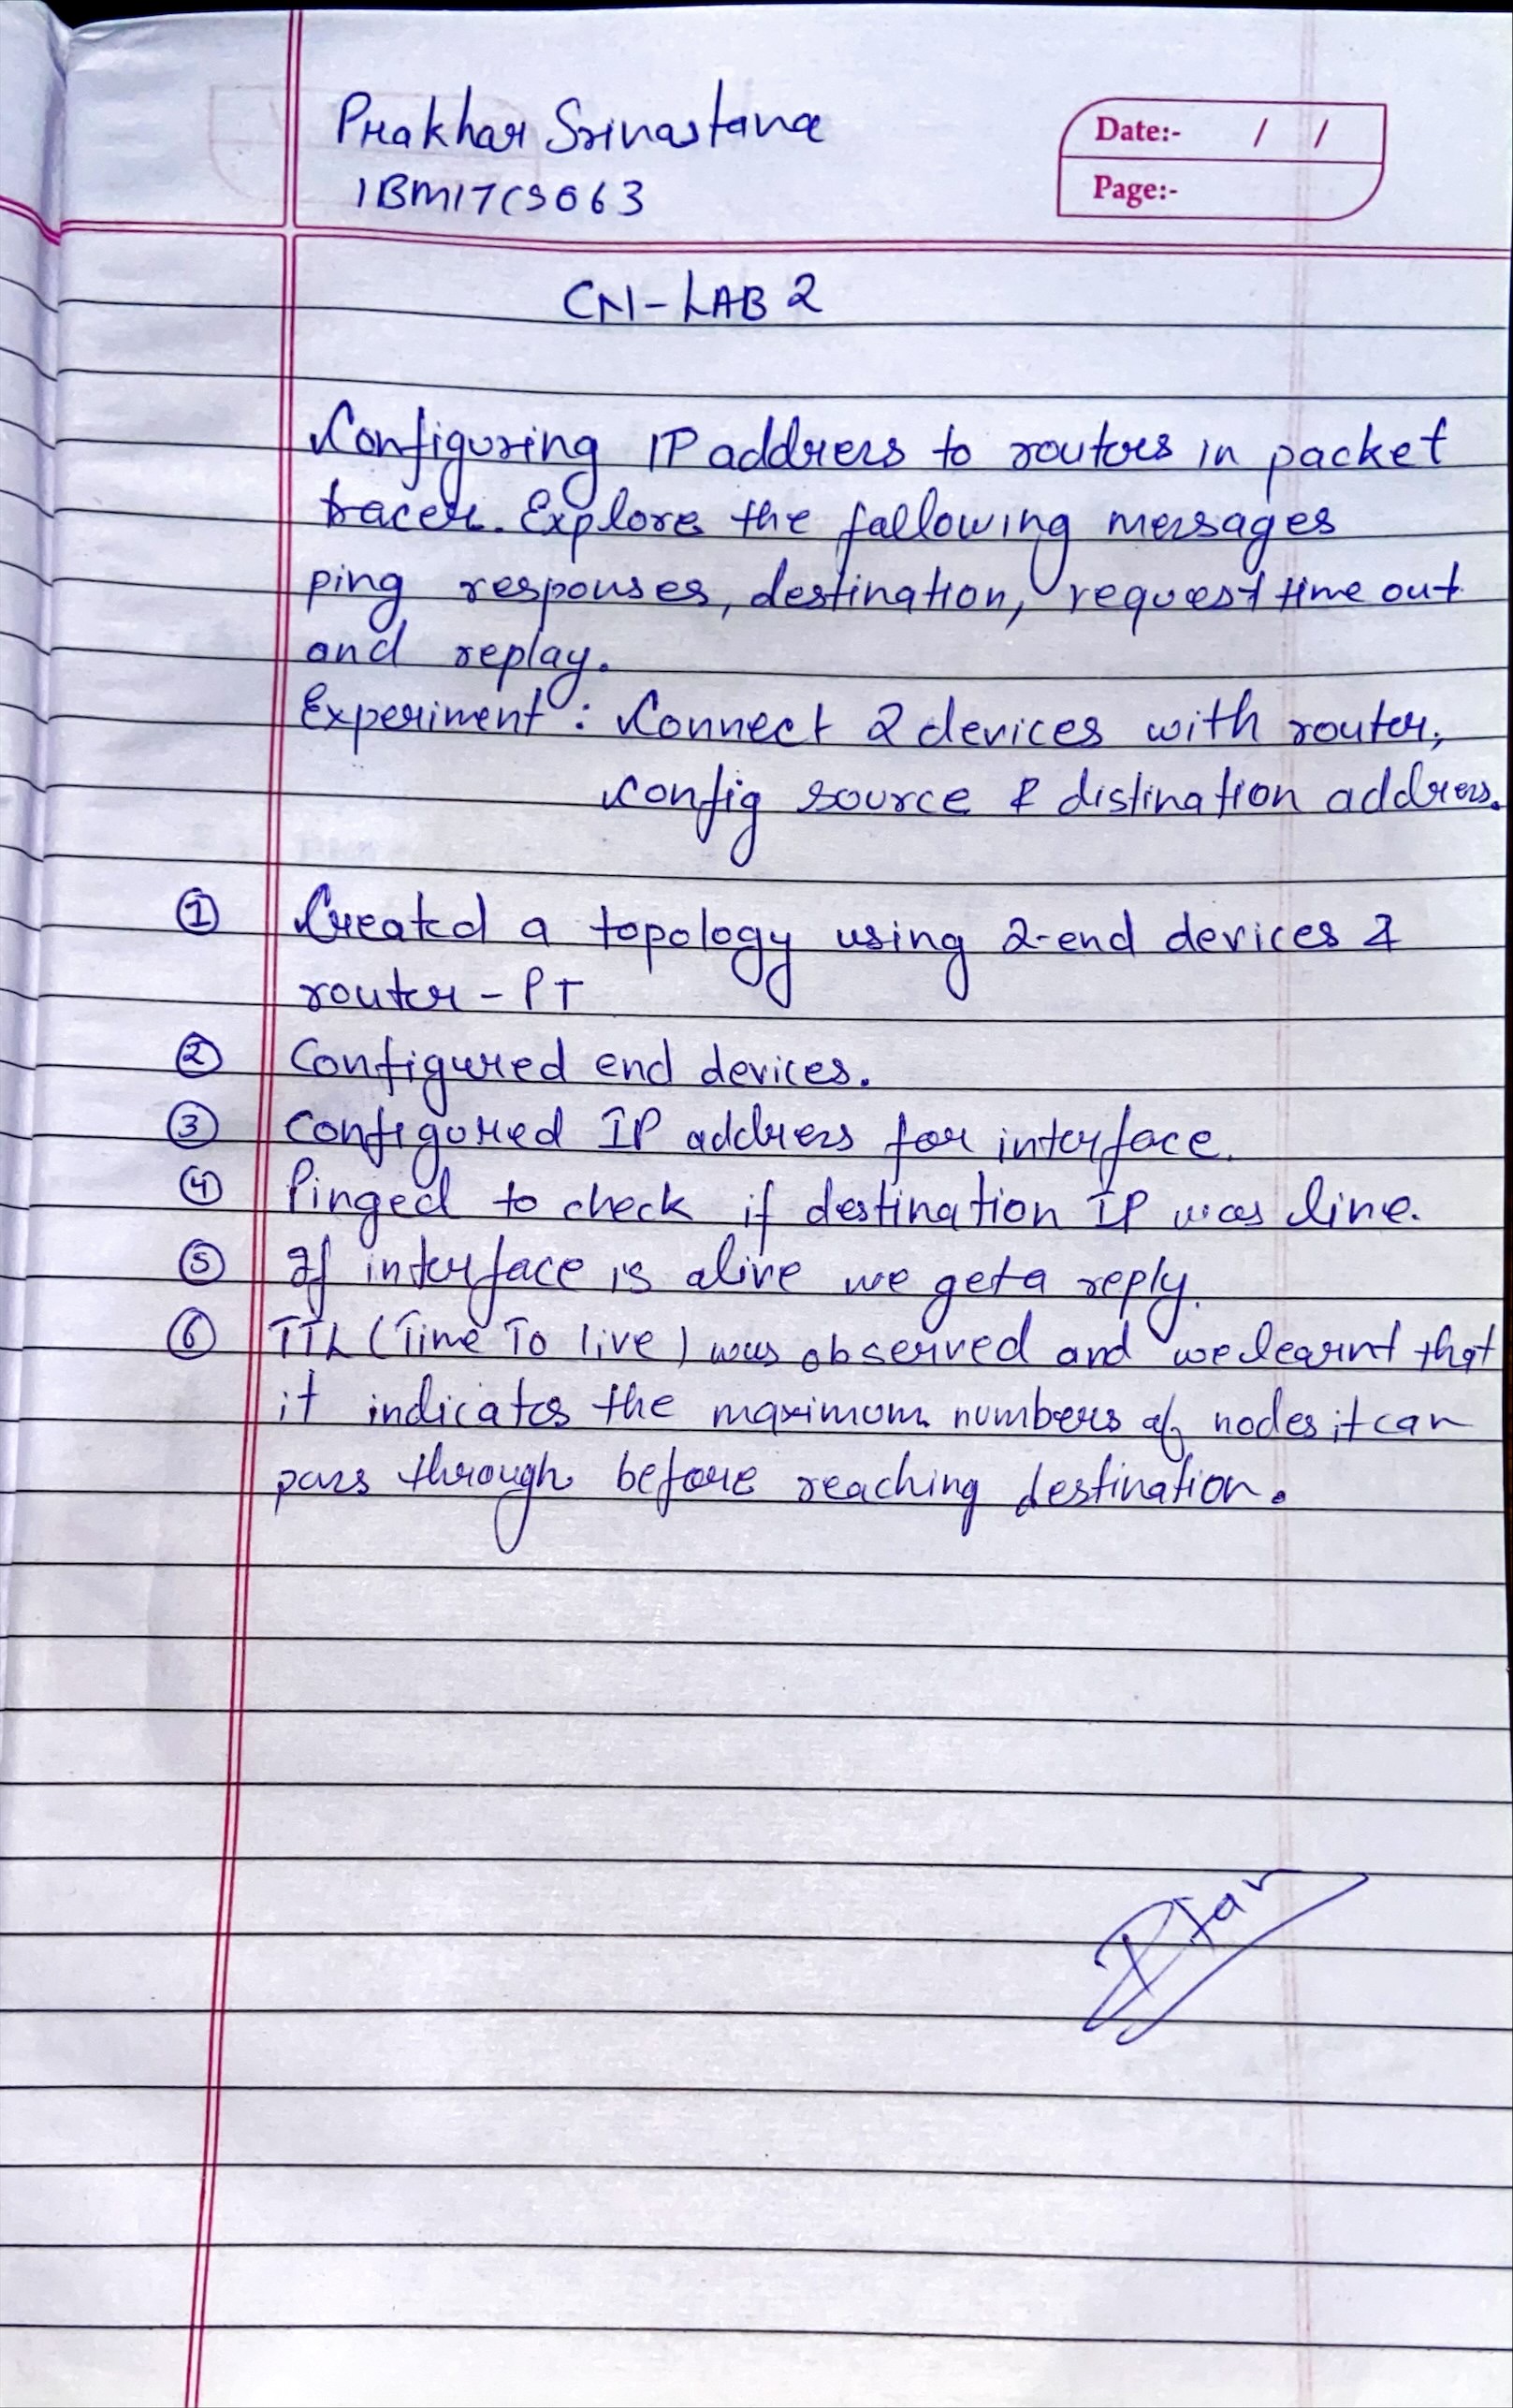 Prakhar Srivastava
1BM17CS063
Date:- / /
Page:-
CN-LAB 2
Configuring IP address to routers in packet
tracer. Explore the following messages
ping responses, destination, request time out
and replay.
Experiment : Connect 2 devices with router,
config source & distination address.
① Created a topology using 2-end devices &
router - PT
② Configured end devices.
③ Configured IP address for interface.
④ Pinged to check if destination IP was live.
⑤ If interface is alive we get a reply.
⑥ TTL (Time To live) was observed and we learnt that
it indicates the maximum numbers of nodes it can
pass through before reaching destination.